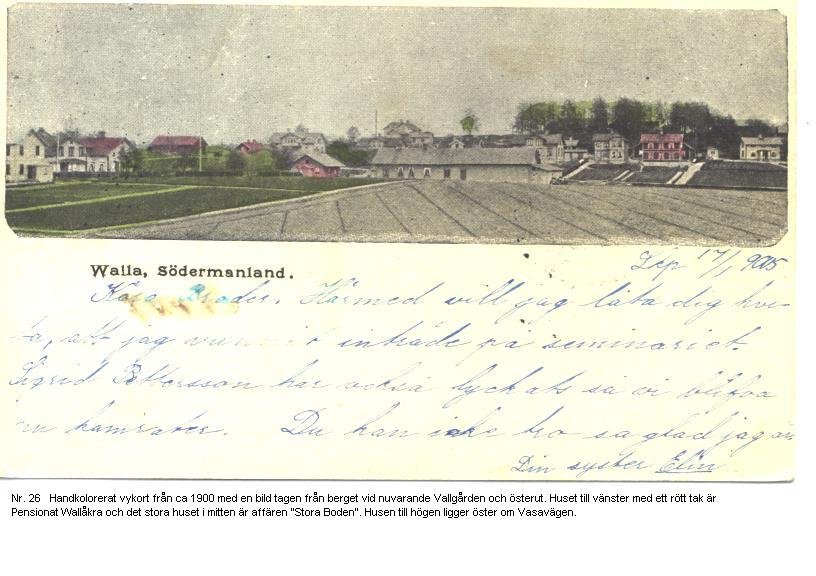 Walla, Södermanland.
Lkp 17/1 1905
Kära Broder. Härmed vill jag låta dig hve-
ta, att jag vunnit inträde på seminariet.
Sigrid Pettersson har också lyckats så vi blifva
nu kamrater. Du kan icke tro så glad jag är
Din syster Elin.
Nr. 26 Handkolorerat vykort från ca 1900 med en bild tagen från berget vid nuvarande Vallgården och österut. Huset till vänster med ett rött tak är
Pensionat Wallåkra och det stora huset i mitten är affären "Stora Boden". Husen till högen ligger öster om Vasavägen.